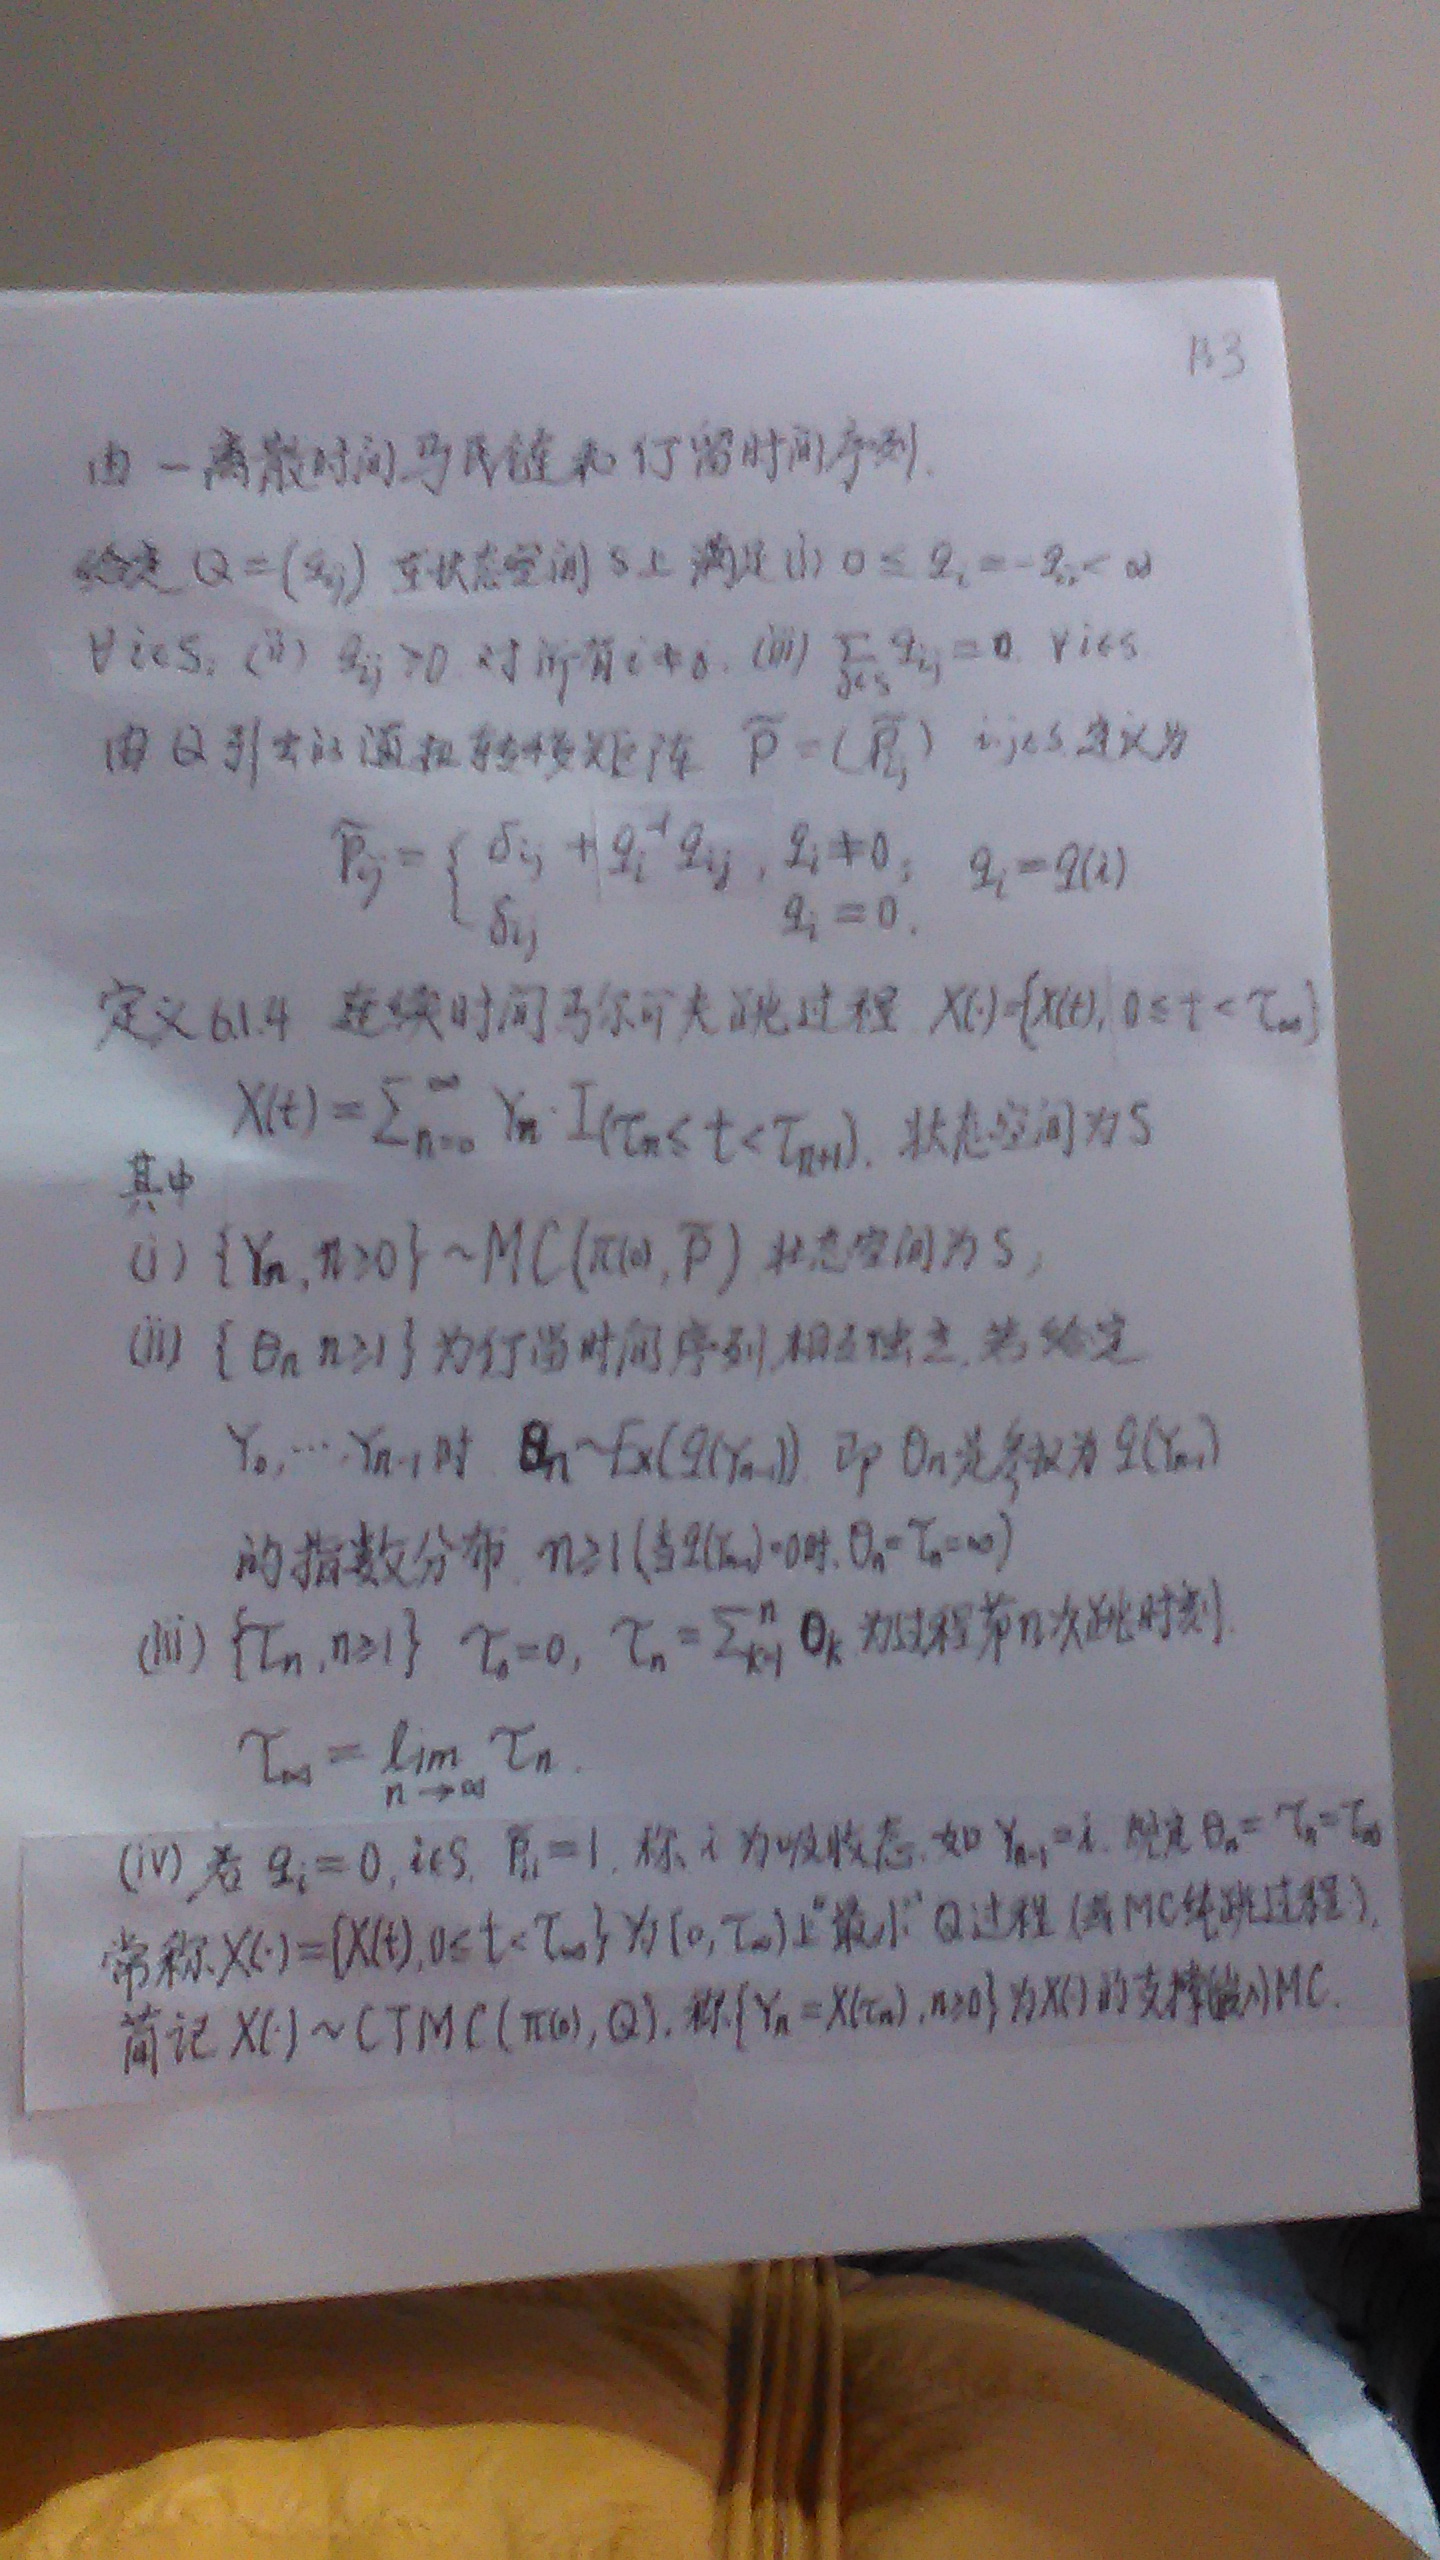 B3
由一离散时间马氏链和停留时间序列.
给定 Q=(q_ij) 在状态空间S上 满足 (i) 0 ≤ q_i = -q_ii < ∞
∀i∈S, (ii) q_ij ≥0 对所有i≠j. (iii) ∑_{j∈S} q_ij = 0. ∀i∈S.
由Q引出的 转移矩阵 P̃ = (P̃_ij) i,j∈S 定义为
P̃_ij = { δ_ij + q_i^{-1} q_ij, q_i ≠ 0; q_i = q(i)
δ_ij q_i = 0.
定义6.1.4 连续时间马尔可夫跳过程 X(·)={X(t), 0≤t<τ_∞}
X(t) = ∑_{n=0}^∞ Y_n · I(τ_n ≤ t < τ_{n+1}). 状态空间为S
其中
(i) {Y_n, n≥0} ~ MC(π(0), P̃) 状态空间为S,
(ii) {θ_n n≥1} 为停留时间序列,相互独立,若给定
Y_0, ⋯ Y_{n-1} 时 θ_n ~ Ex(q(Y_{n-1})) 即 θ_n是参数为 q(Y_{n-1})
的指数分布, n≥1 (当q(Y_{n-1})=0时, θ_n=τ_n=∞)
(iii) {τ_n, n≥1} τ_0=0, τ_n = ∑_{k=1}^n θ_k 为过程第n次跳时刻.
τ_∞ = lim_{n→∞} τ_n.
(iv) 若 q_i=0, i∈S, P̃_ii=1. 称 i 为吸收态. 如 Y_{n-1}=i. 规定 θ_n = τ_n = τ_∞
常称 X(·)={X(t), 0≤t<τ_∞} 为[0, τ_∞)上"最小" Q过程 (或MC纯跳过程),
简记 X(·) ~ CTMC(π(0), Q). 称{Y_n = X(τ_n), n≥0}为X(·)的支撑(嵌入)MC.